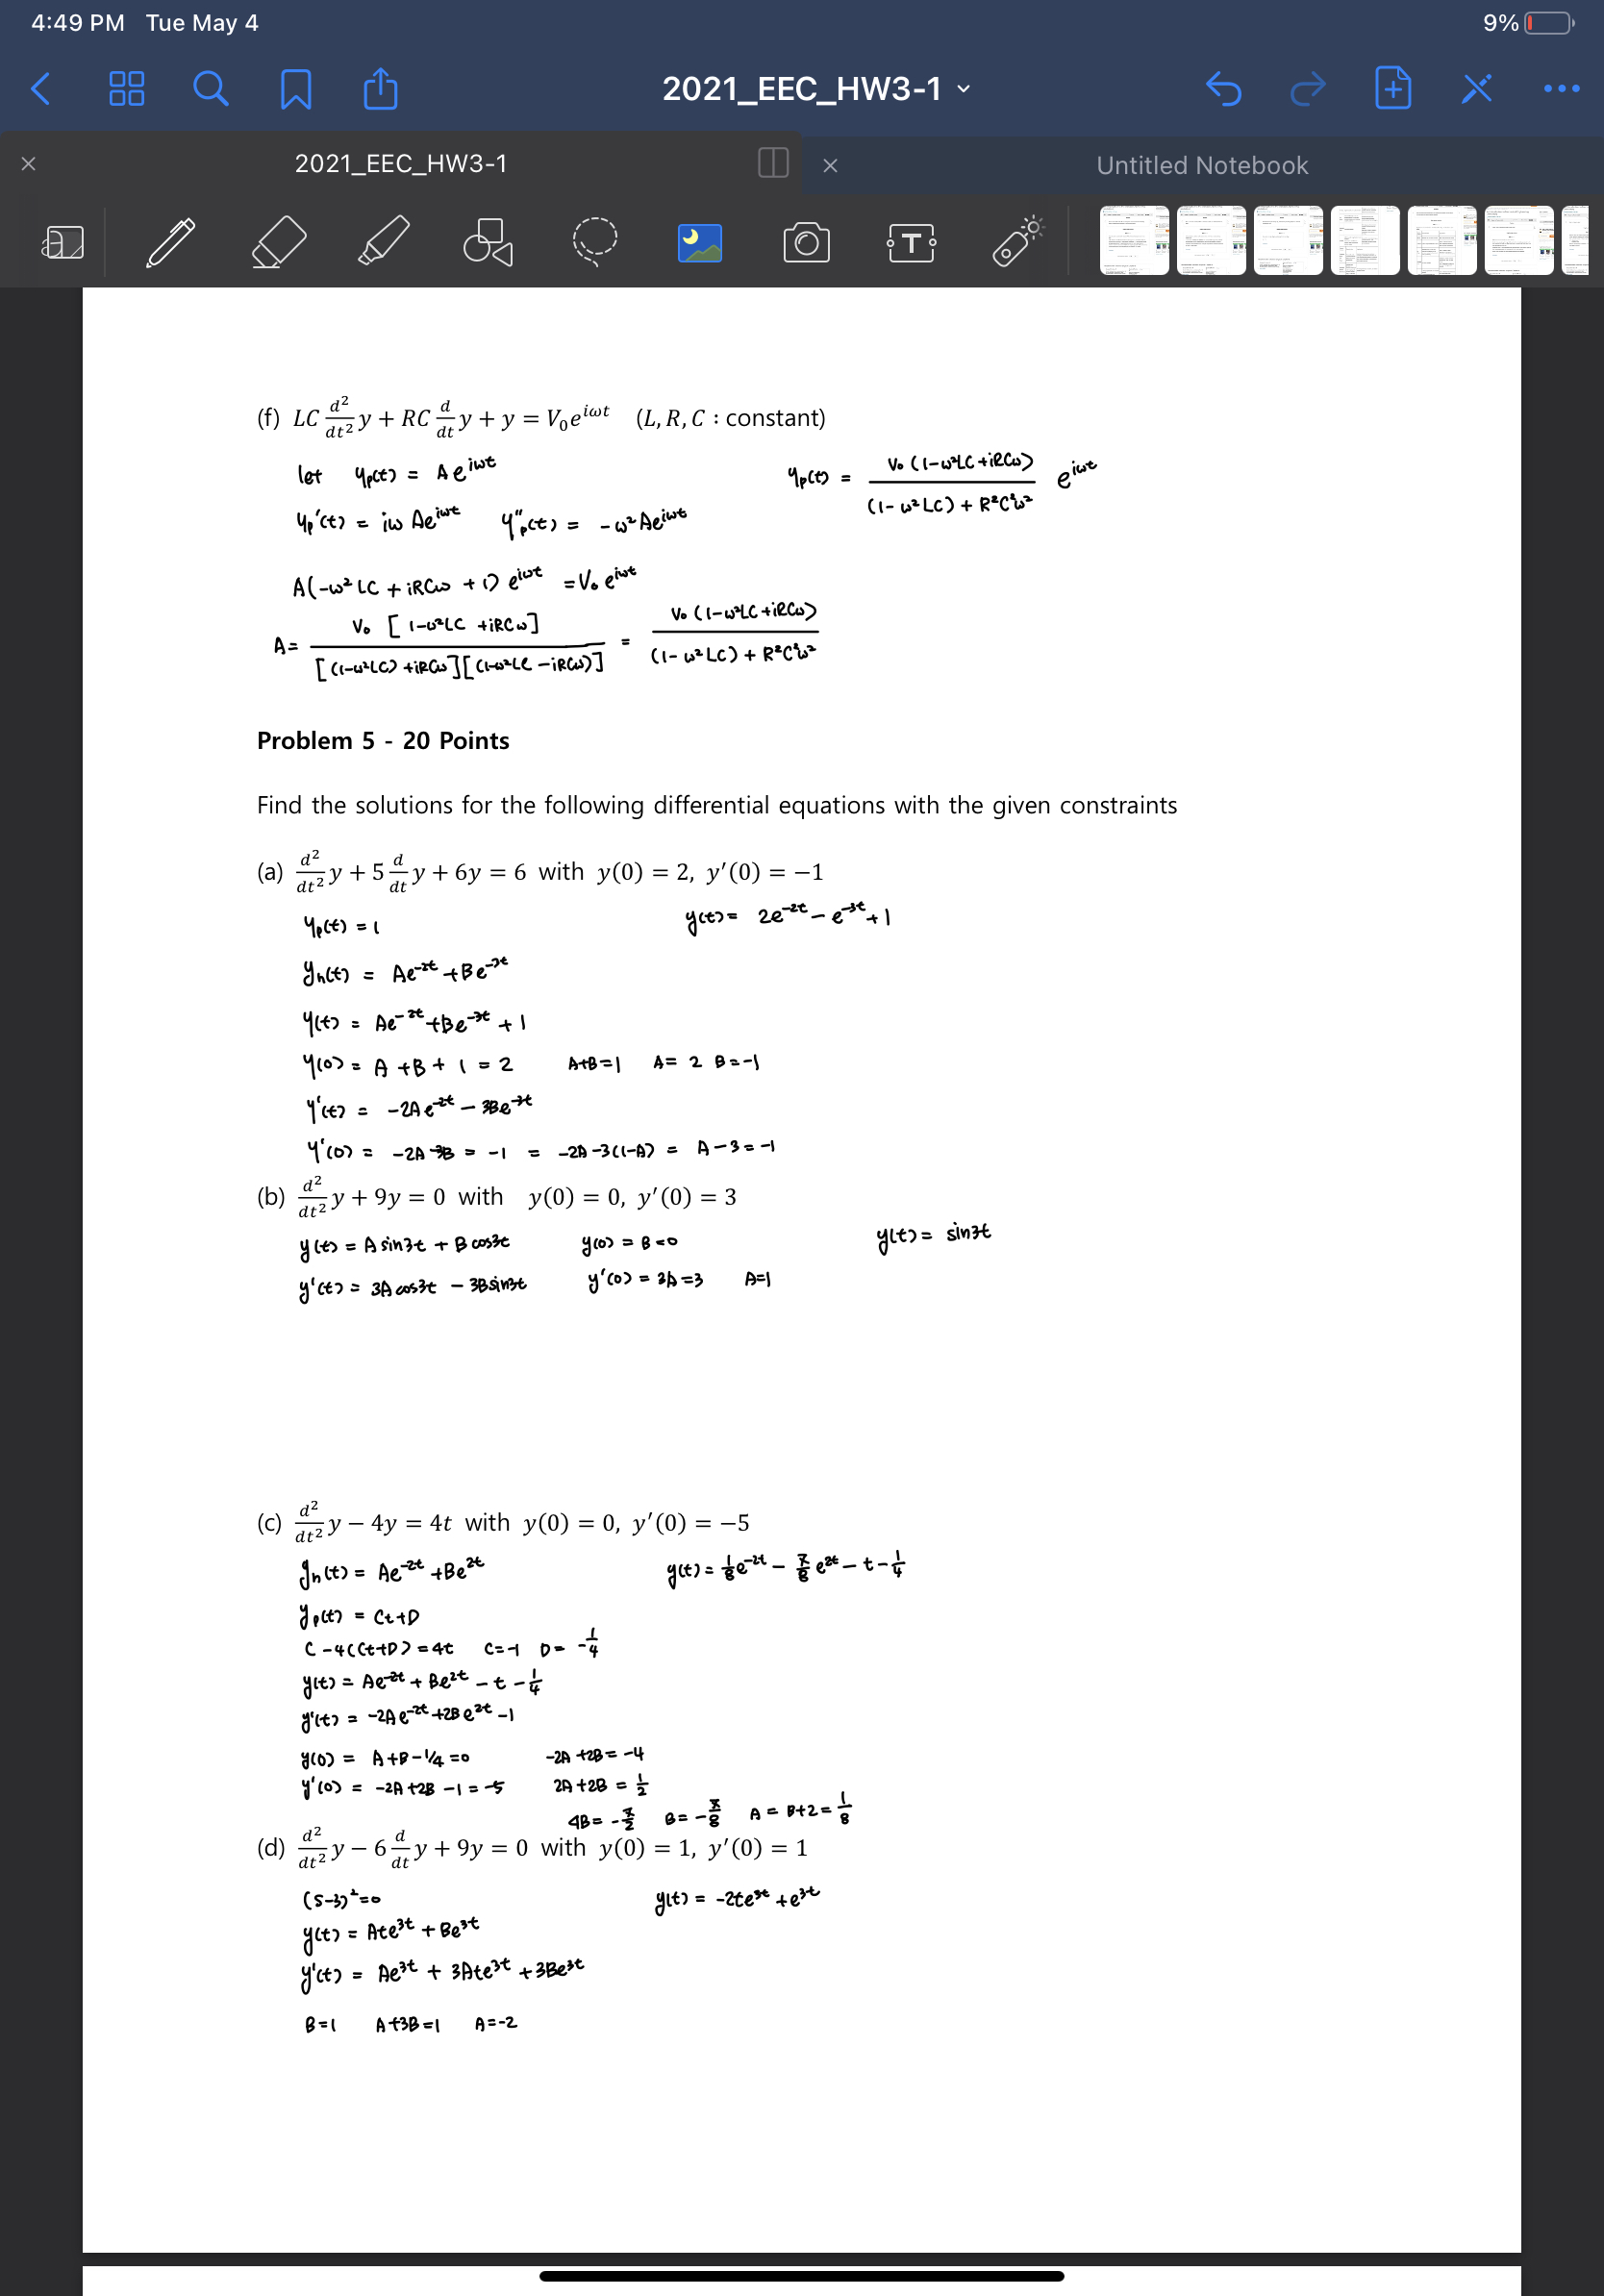 4:49 PM Tue May 4 9%
2021_EEC_HW3-1
2021_EEC_HW3-1 Untitled Notebook
(f) LC d²/dt² y + RC d/dt y + y = V₀e^{iωt} (L, R, C : constant)
let yp(t) = A e^{iωt}
yp(t) = V₀(1-ω²LC+iRCω) / (1-ω²LC)+R²C²ω² e^{iωt}
yp'(t) = iω Ae^{iωt} y"p(t) = -ω²Ae^{iωt}
A(-ω²LC + iRCω + 1) e^{iωt} = V₀ e^{iωt}
A = V₀ [1-ω²LC +iRCω] / [(1-ω²LC)+iRCω][(1-ω²LC -iRCω)] = V₀(1-ω²LC+iRCω) / (1-ω²LC)+R²C²ω²
Problem 5 - 20 Points
Find the solutions for the following differential equations with the given constraints
(a) d²/dt² y + 5 d/dt y + 6y = 6 with y(0) = 2, y′(0) = −1
yp(t) = 1
y(t) = 2e^{-2t} - e^{-3t} + 1
yh(t) = Ae^{-2t} + Be^{-3t}
y(t) = Ae^{-2t} + Be^{-3t} + 1
y(0) = A + B + 1 = 2 A+B=1 A= 2 B=-1
y'(t) = -2Ae^{-2t} - 3Be^{-3t}
y'(0) = -2A-3B = -1 = -2A-3(1-A) = A-3=-1
(b) d²/dt² y + 9y = 0 with y(0) = 0, y′(0) = 3
y(t) = A sin3t + B cos3t y(0) = B = 0 y(t) = sin3t
y'(t) = 3A cos3t - 3Bsin3t y'(0) = 3A=3 A=1
(c) d²/dt² y − 4y = 4t with y(0) = 0, y′(0) = −5
yh(t) = Ae^{-2t} + Be^{2t} y(t) = 1/8 e^{-2t} - 7/8 e^{2t} - t - 1/4
yp(t) = Ct+D
C-4(Ct+D)=4t C=-1 D= -1/4
y(t) = Ae^{-2t} + Be^{2t} - t - 1/4
y'(t) = -2Ae^{-2t}+2Be^{2t}-1
y(0) = A+B-1/4=0 -2A+2B=-4
y'(0) = -2A+2B-1=-5 2A+2B = 1/2
4B= -7/2 B= -7/8 A= B+2= 1/8
(d) d²/dt² y − 6 d/dt y + 9y = 0 with y(0) = 1, y′(0) = 1
(s-3)²=0 y(t) = -2te^{3t}+e^{3t}
y(t) = Ate^{3t} + Be^{3t}
y'(t) = Ae^{3t} + 3Ate^{3t} + 3Be^{3t}
B=1 A+3B=1 A=-2